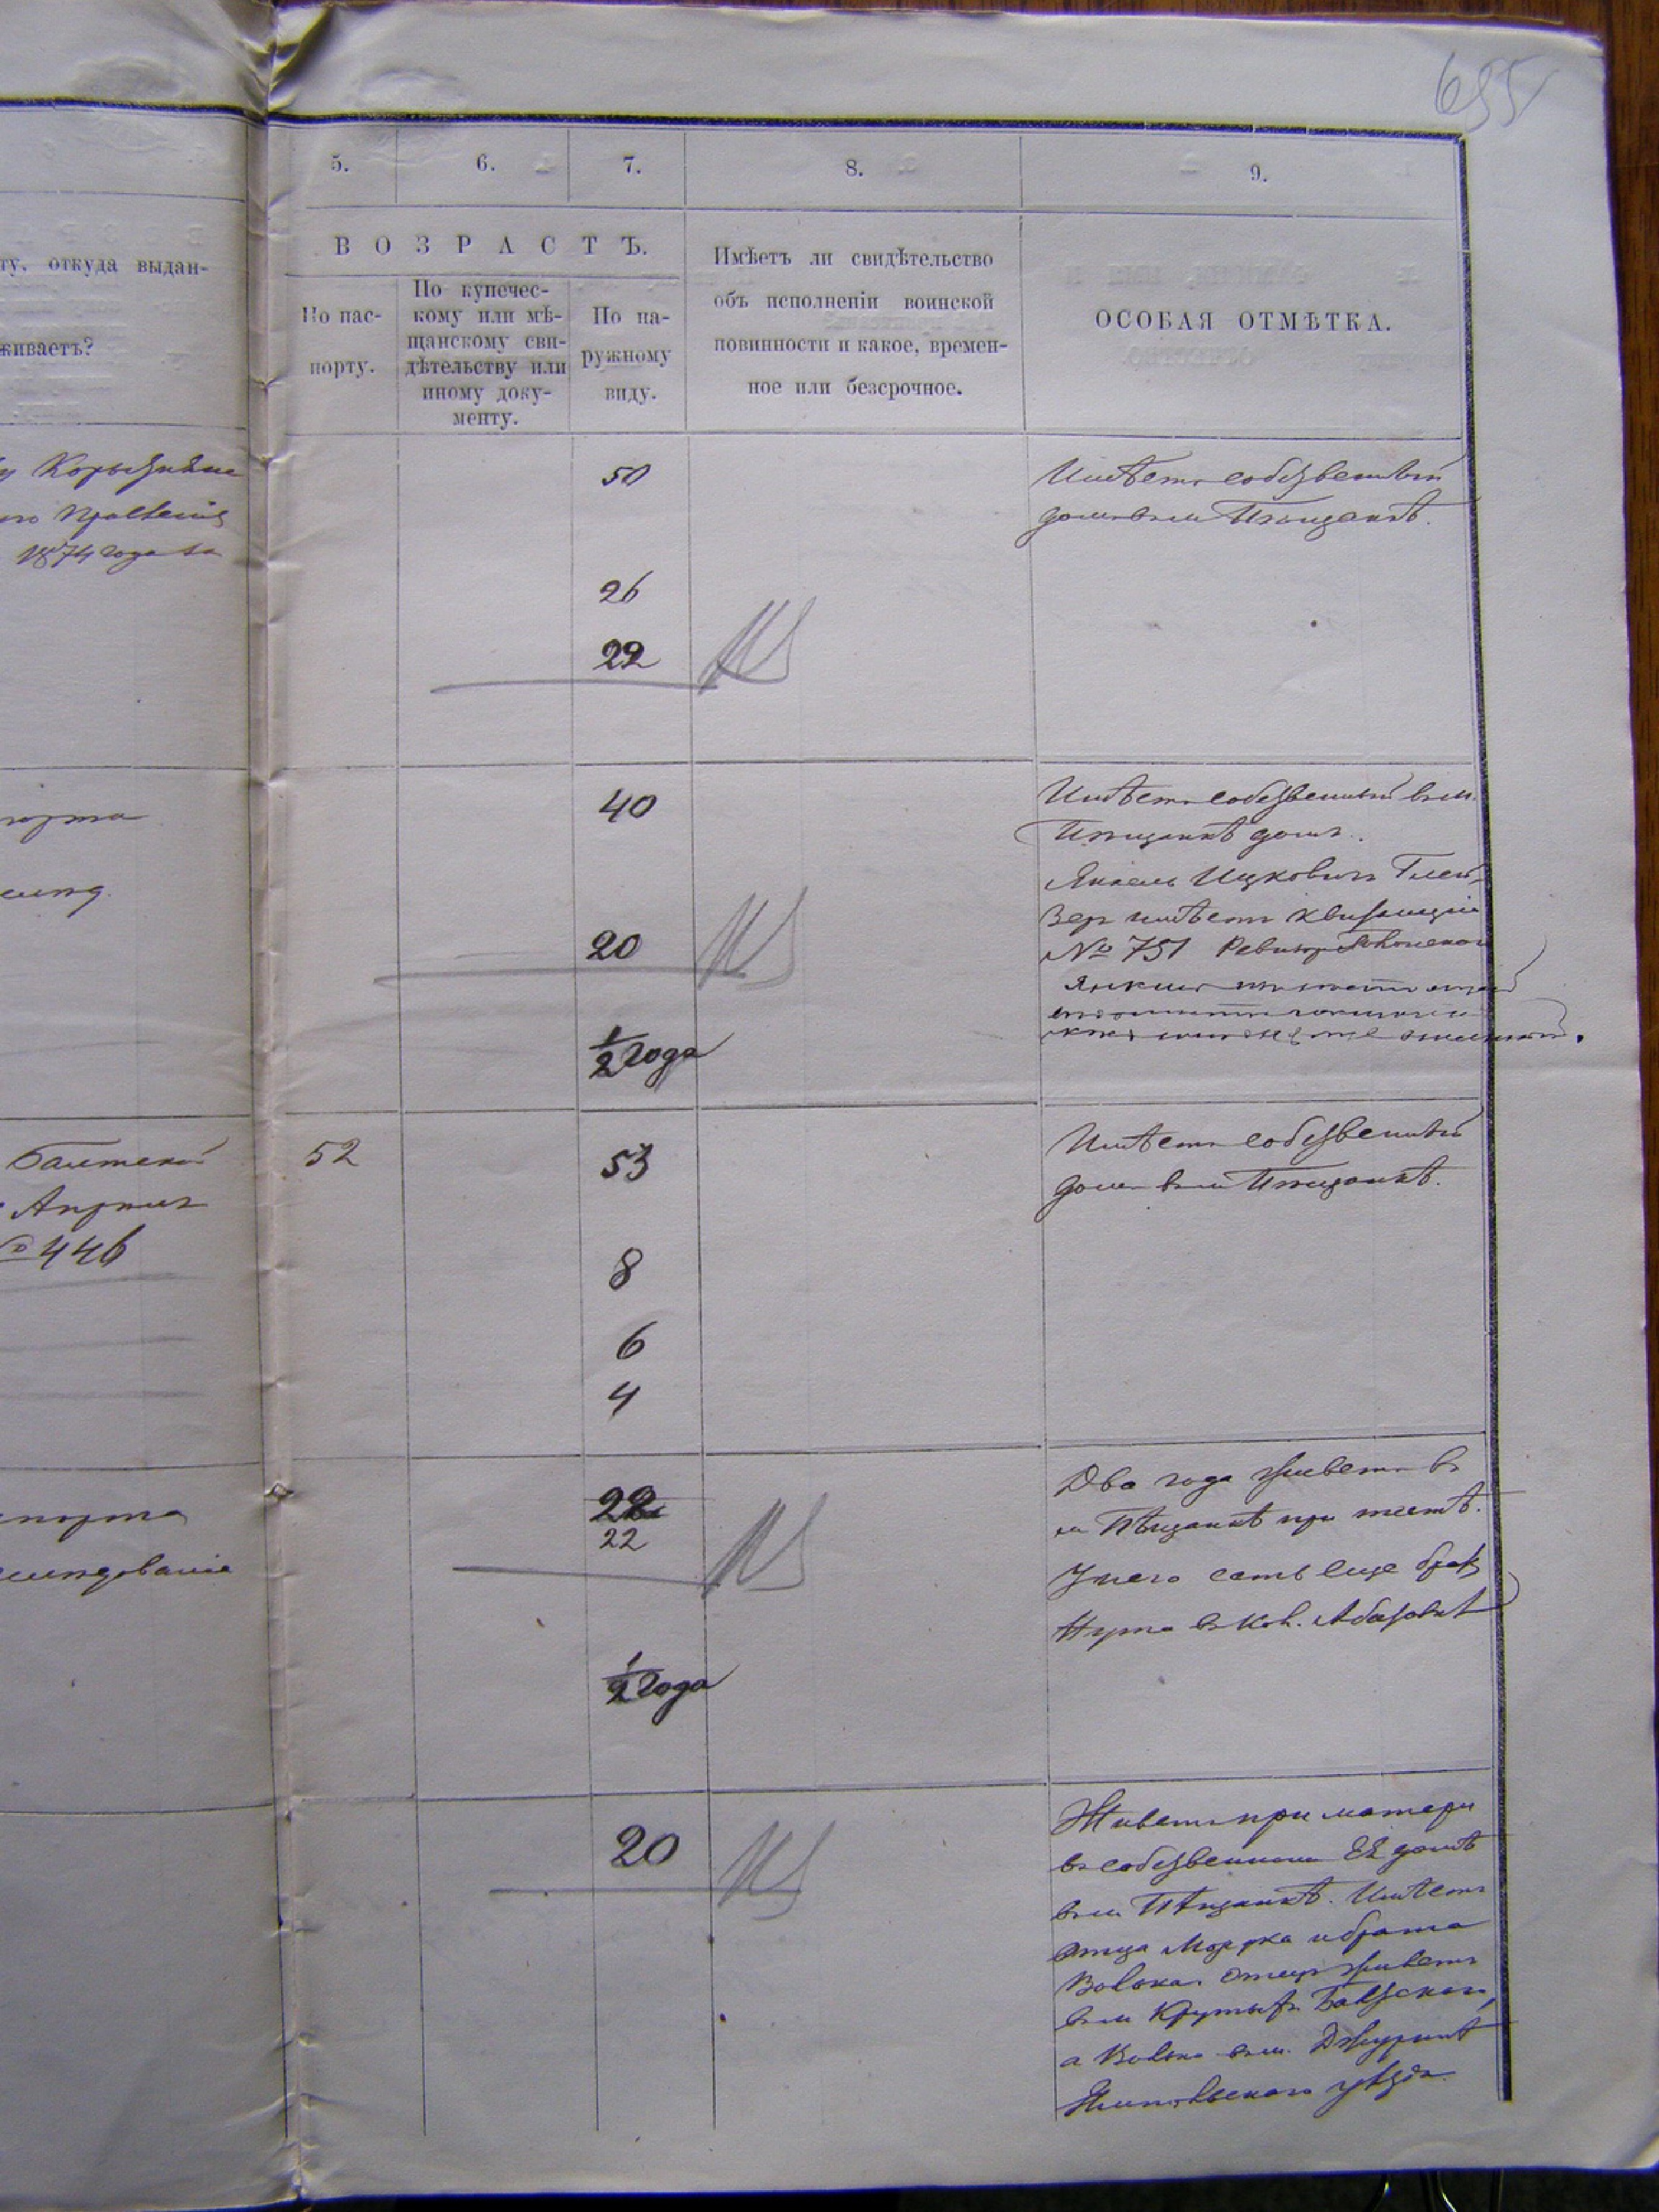 655
5. 6. 7. 8. 9.
ту, откуда выдан-
живаетъ?
ВОЗРАСТЪ.
По пас-
порту.
По купечес-
кому или мѣ-
щанскому сви-
дѣтельству или
иному доку-
менту.
По на-
ружному
виду.
Имѣетъ ли свидѣтельство
объ исполненіи воинской
повинности и какое, времен-
ное или безсрочное.
ОСОБАЯ ОТМѢТКА.
1874 года
50
26
22
Имѣетъ собственный
домъ въ м Пѣщанкѣ.
порта
40
20
1/2 года
Имѣетъ собственный въ м.
Пѣщанкѣ домъ.
Янкель Ицковичъ Глей-
зеръ имѣетъ квитанцію
№ 751
Балтской
№ 446
52
53
8
6
4
Имѣетъ собственный
домъ въ м Пѣщанкѣ.
порта
22
22
1/2 года
Два года живетъ въ
м Пѣщанкѣ при тестѣ.
У него есть еще братъ
въ кол. Абазовкѣ
20
Живетъ при матери
въ собственномъ ЕЯ домѣ
въ м Пѣщанкѣ. Имѣетъ
отца Мордка и брата
Волька. Отецъ живетъ
въ м Крутыхъ Балтскаго,
а Волько въ м. Джуринѣ
Ямпольскаго уѣзда.